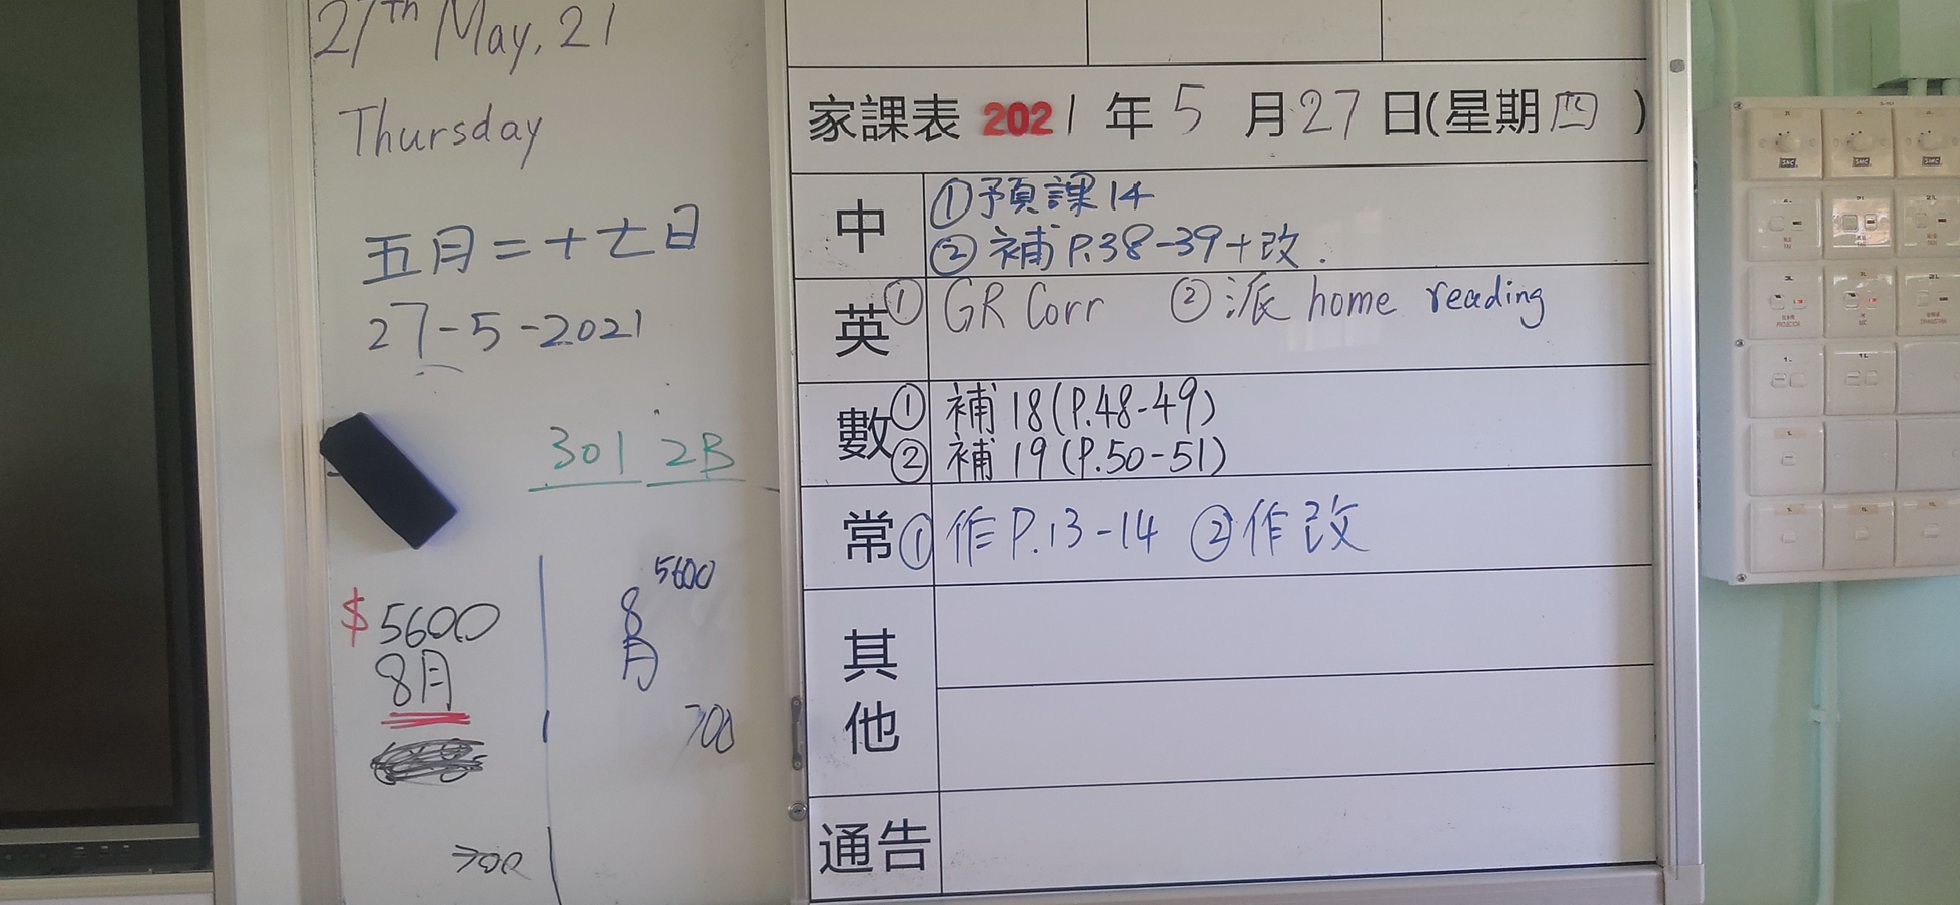 27th May, 21
Thursday
五月二十七日
27-5-2021
301 2B
$5600
8月
5600
8
月
700
700
家課表 2021年5月27日(星期四)
中
①預課14
②補P.38-39+改.
英
①GR Corr ②派 home reading
數
①補18(P.48-49)
②補19(P.50-51)
常
①作P.13-14 ②作改
其
他
通告